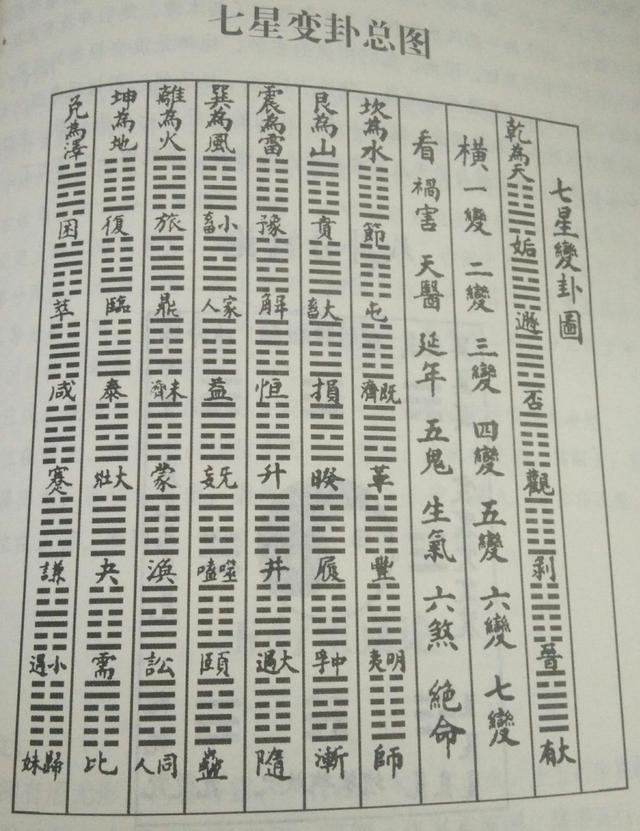 七星变卦总图
七星變卦圖
乾為天 姤 遯 否 觀 剥 晉 大有
横 一變 二變 三變 四變 五變 六變 七變
看 禍害 天醫 延年 五鬼 生氣 六煞 絕命
坎為水 節 屯 既濟 革 豐 明夷 師
艮為山 賁 大畜 損 睽 履 中孚 漸
震為雷 豫 解 恒 升 井 大過 隨
巽為風 小畜 家人 益 无妄 噬嗑 頤 蠱
離為火 旅 鼎 未濟 蒙 渙 訟 同人
坤為地 復 臨 泰 大壯 夬 需 比
兌為澤 困 萃 咸 蹇 謙 小過 歸妹